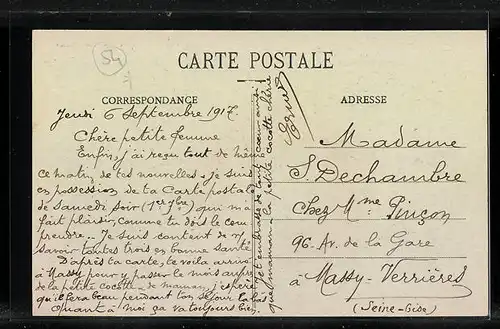 54
CARTE POSTALE
CORRESPONDANCE
Jeudi 6 Septembre 1917.
Chère petite femme
Enfin, j'ai reçu tout de même
ce matin, de tes nouvelles. Je suis
en possession de ta Carte postale
de samedi soir (1er 7bre) qui m'a
fait plaisir, comme tu dois le com
prendre.. Je suis content de vs
savoir toutes trois en bonne santé
D'après ta carte, te voilà arrivée
à Massy pour y passer le mois auprès
de la petite cocotte de maman, j'espère
qu'il fera beau pendant ton séjour là-bas
Quant à moi ça va toujours bien,
je t'embrasse de tout cœur ainsi
que maman & la petite cocotte chérie
ADRESSE
Madame
S. Dechambre
Chez Mme Pinçon
96. Av. de la Gare
à Massy-Verrières
(Seine-&-Oise)